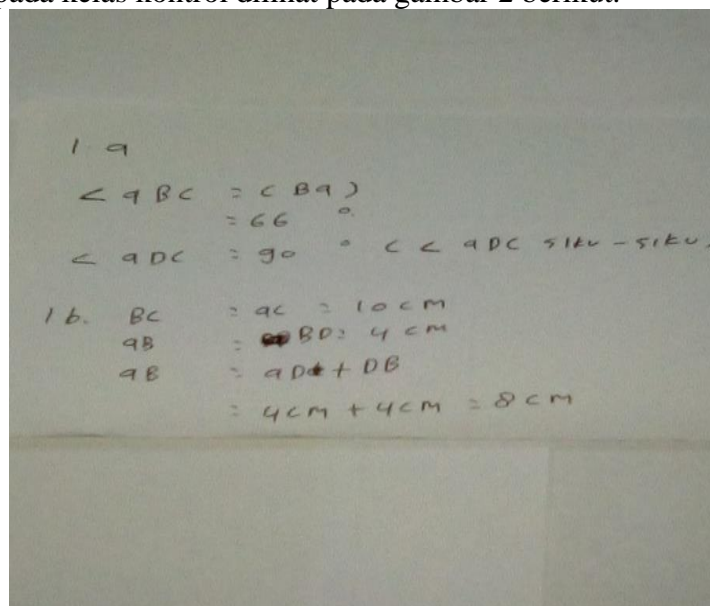 pada kelas kontrol dilihat pada gambar 2 berikut:
1. a
< aBC = < Ba )
= 66 °
< aDC = 90 ° < < aDC siku-siku.
1 b. BC = ac = 10 cm
aB = BD = 4 cm
aB = aD + DB
= 4cm + 4cm = 8cm